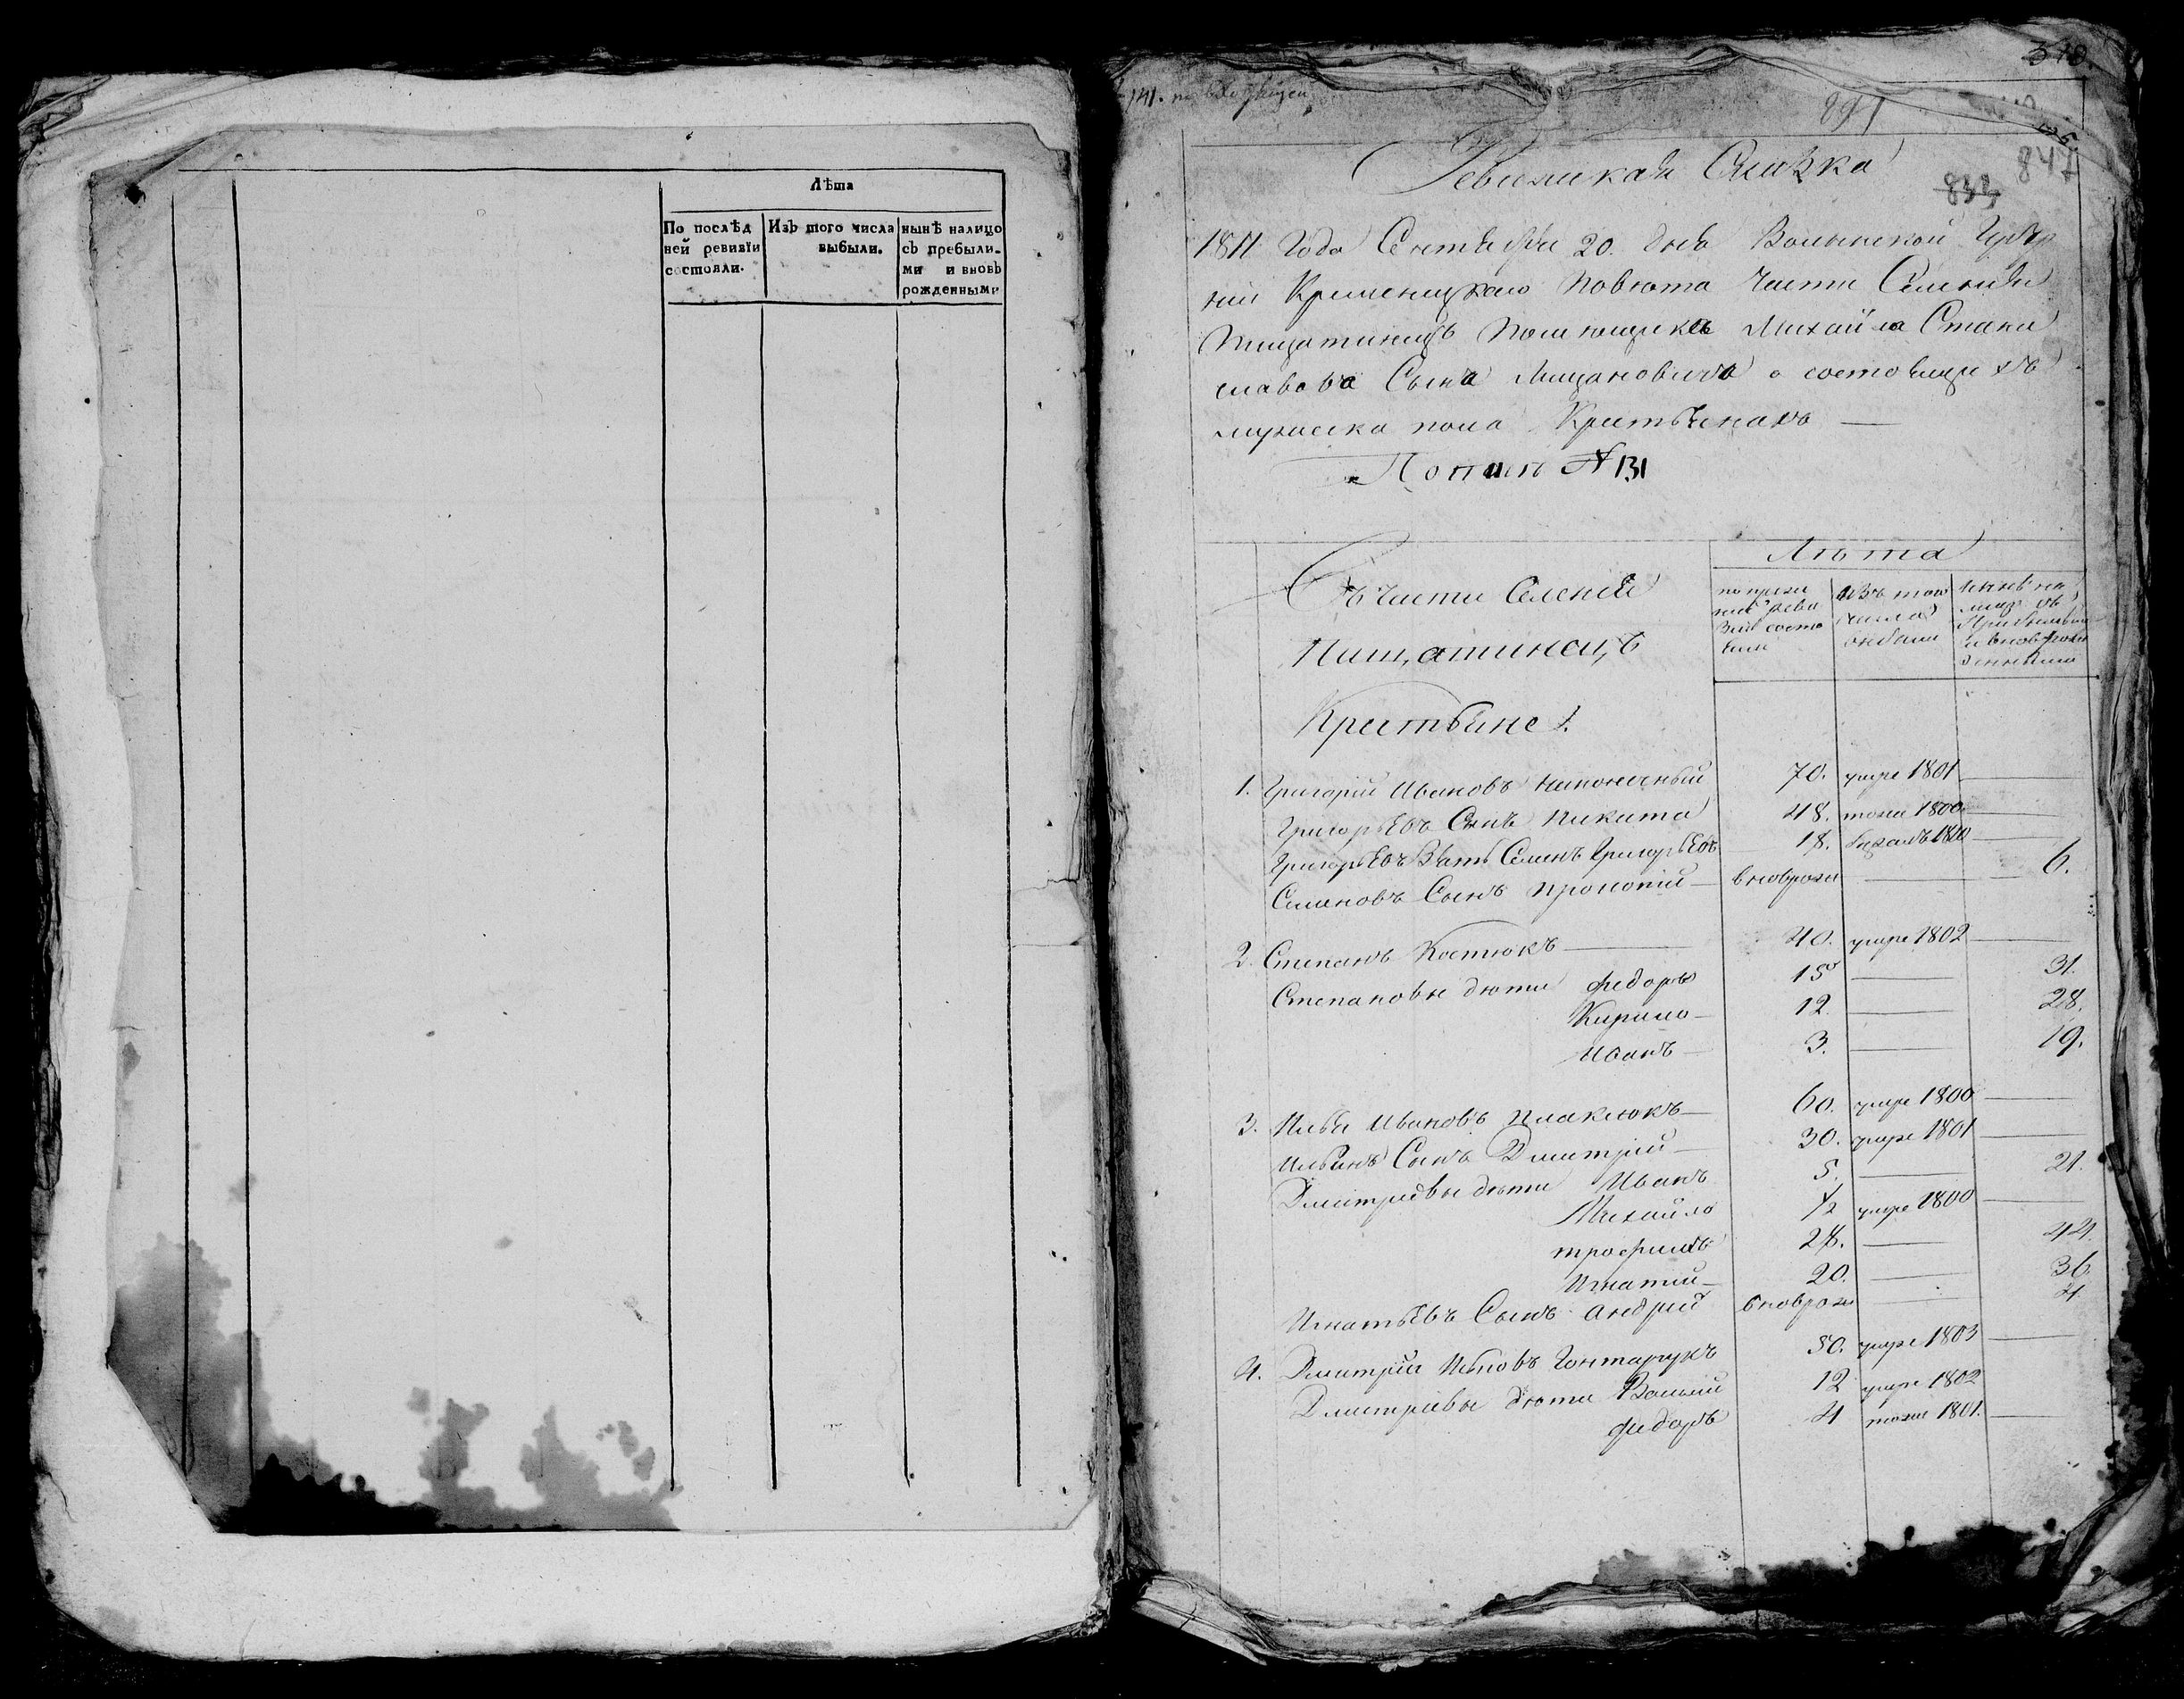 Лѣта
По послѣд
ней ревизїи
состояли.
Изъ того числа
выбыли.
нынѣ налицо
съ пребылы-
ми и вновь
рожденными
340.
291
833
847
Ревизская Сказка
1811 Года Сентября 20. дня Волынской Губер
нии Кременицкаго Повѣта Части Селения
Пищатинецъ Помѣщика Михайла Стани
славова Сына о состоящихъ
мужеска пола Крестьянахъ
№ 131
Лѣта
Въ Части Селения
Пищатинецъ
Крестьяне
изъ того
числа
выбыли
1. Григорий Ивановъ 70. умре 1801
Григорьевъ Сынъ Никита 48. тожъ 1800
Григорьевъ Зять Семенъ Григорьевъ 18. 1810
Семеновъ Сынъ Прокопий вновьрож 6.
2. Степанъ Костюкъ 40. умре 1802
Степановы дѣти федоръ 15 31.
Кирило 12. 28.
Иванъ 3. 19.
3. Илья Ивановъ 60. умре 1800
Ильинъ Сынъ Дмитрий 30. умре 1801
Дмитриевы дѣти Иванъ 5. 21.
Михайло 1/2 умре 1800
трофимъ 28. 44.
Игнатий 20. 36.
Игнатьевъ Сынъ андрий вноврож 4
4. Дмитрий Гонтарукъ 50. умре 1803
Дмитриевы дѣти 12 умре 1802
федоръ 4 тоже 1801.